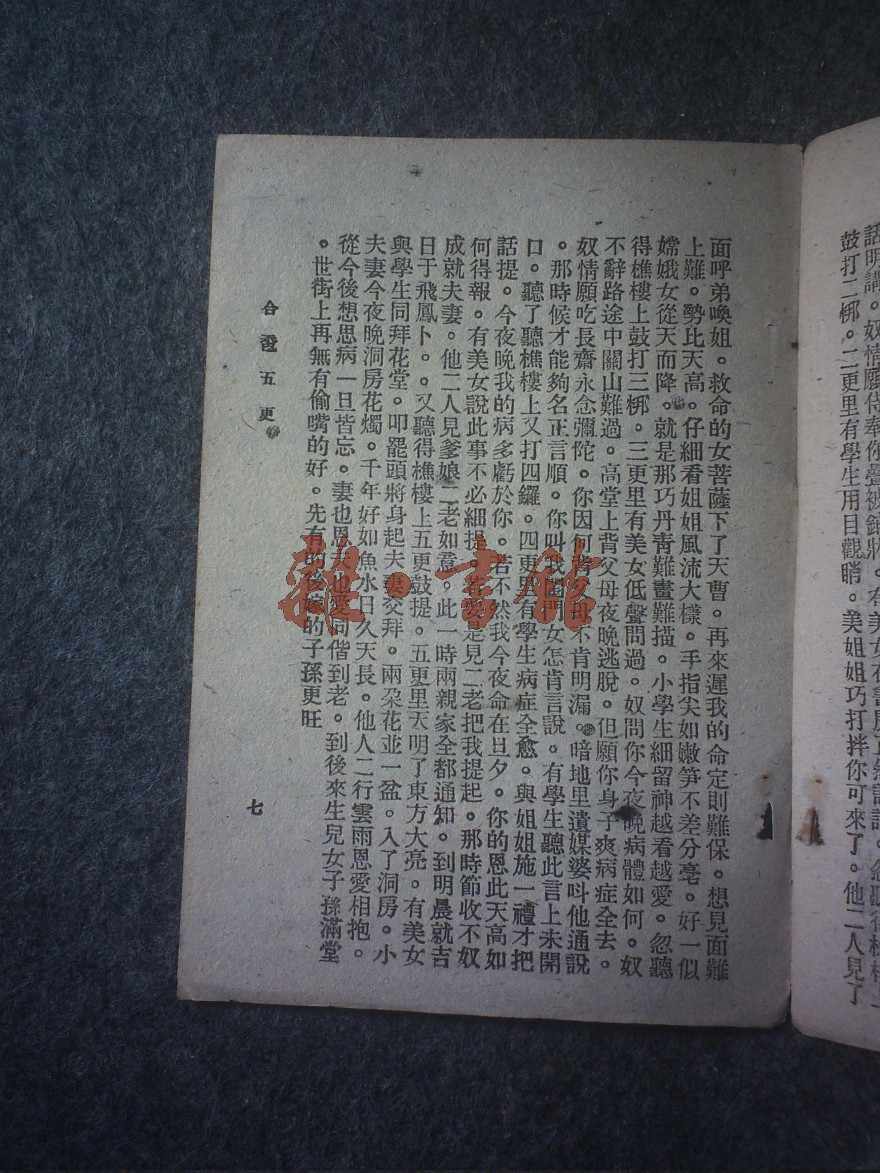 話明講。奴情願侍奉你疊被鋪牀。有美女在書房
鼓打二梆。二更里有學生用目觀睄。美姐姐巧打拌你可來了。他二人見了
面呼弟喚姐。救命的女菩薩下了天曹。再來遲我的命定則難保。想見面難
上難。勢比天高。仔細看姐姐風流大樣。手指尖如嫩笋不差分亳。好一似
嫦娥女從天而降。就是那巧丹青難畫難描。小學生細留神越看越愛。忽聽
得樵樓上鼓打三梆。三更里有美女低聲問過。奴問你今夜晚病體如何。奴
不辭路途中關山難過。高堂上背父母夜晚逃脫。但願你身子爽病症全去。
奴情願吃長齋永念彌陀。你因何背父母不肯明漏。暗地里遺媒婆呌他通說
。那時候才能夠名正言順。你叫我閨門女怎肯言說。有學生聽此言上未開
口。聽了聽樵樓上又打四鑼。四更里有學生病症全愈。與姐姐施一禮才把
話提。今夜晚我的病多虧於你。若不然我今夜命在旦夕。你的恩此天高如
何得報。有美女說此事不必細提。若要是見二老把我提起。那時節收不奴
成就夫妻。他二人見爹娘二老如意。此一時兩親家全都通知。到明晨就吉
日于飛鳳卜。。又聽得樵樓上五更鼓提。五更里天明了東方大亮。有美女
與學生同拜花堂。叩罷頭將身起夫妻交拜。兩朶花並一盆。入了洞房。小
夫妻今夜晚洞房花燭。千年好如魚水日久天長。他人二行雲雨恩愛相抱。
從今後想思病一旦皆忘。妻也恩夫也愛同偕到老。到後來生兒女子孫滿堂
。世街上再無有偷嘴的好。先有的後嫁的子孫更旺
合 五更
七
雜·書館